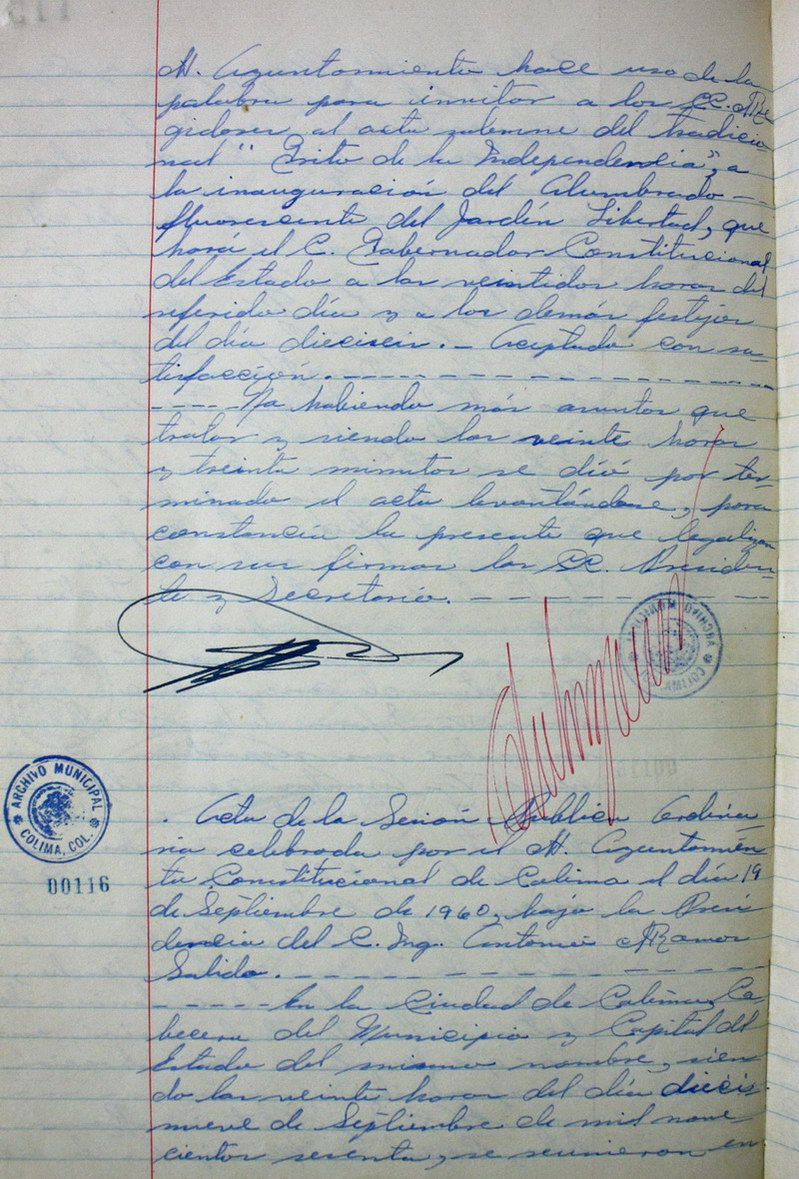 H. Ayuntamiento hace uso de la
palabra para invitar a los CC. Re
gidores al acto solemne del tradicio-
nal "Grito de la Independencia", a
la inauguración del Alumbrado --
fluorescente del Jardín Libertad, que
hará el C. Gobernador Constitucional
del Estado a las veintidos horas del
referido día y a los demás festejos
del día dieciseis. - Aceptado con sa-
tisfacción. - - - - - - - - - - - - - -
- - - - No habiendo más asuntos que
tratar y siendo las veinte horas
y treinta minutos se dió por ter-
minado el acto levantándose, para
constancia la presente que legalizan
con sus firmas los CC. Presiden-
te y Secretario. - - - - - - - - - -
ARCHIVO MUNICIPAL
COLIMA
ARCHIVO MUNICIPAL
COLIMA, COL.
00116
. Acta de la Sesión Pública Ordina-
ria celebrada por el H. Ayuntamien-
to Constitucional de Colima el día 19
de Septiembre de 1960, bajo la Presi
dencia del C. Ing. Antonio Ramos
Salido. - - - - - - - - - - - - - - -
- - - - - En la Ciudad de Colima, Ca
becera del Municipio y Capital del
Estado del mismo nombre, sien-
do las veinte horas del día dieci-
nueve de Septiembre de mil nove-
cientos sesenta, se reunieron en